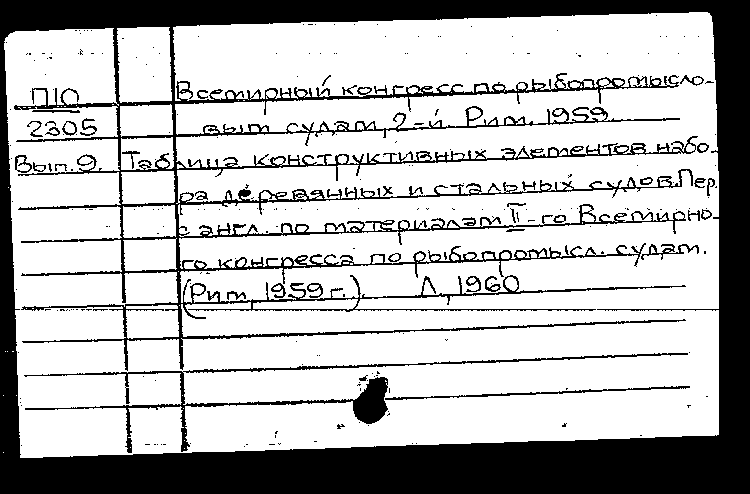 П10 Всемирный конгресс по рыбопромысло-
2305 вым судам, 2-й. Рим. 1959.
Вып. 9. Таблица конструктивных элементов набо-
ра деревянных и стальных судов. Пер.
с англ. по материалам II-го Всемирно-
го конгресса по рыбопромысл. судам.
(Рим, 1959 г.). Л., 1960